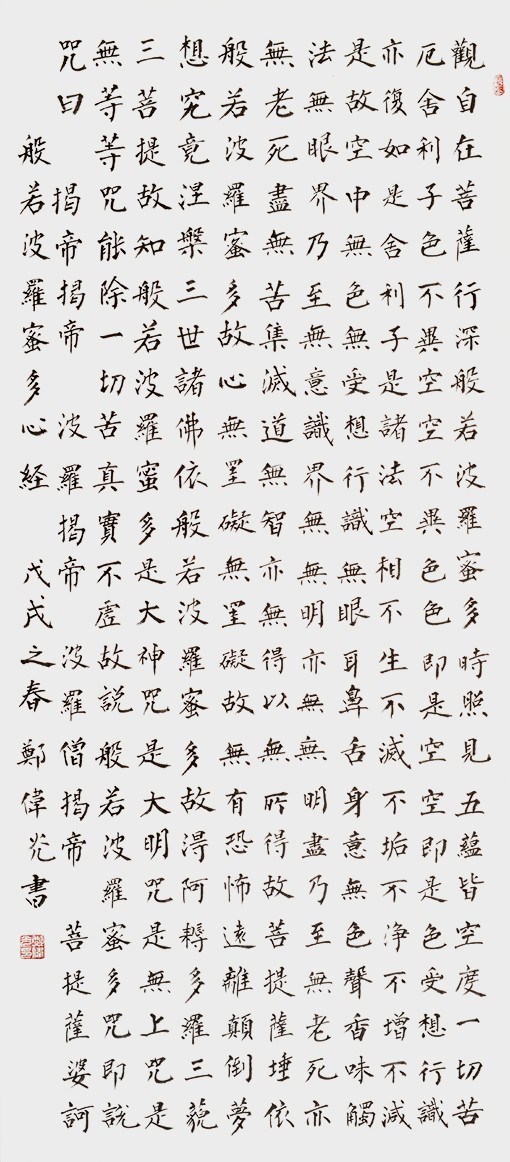 觀自在菩薩行深般若波羅蜜多時照見五蘊皆空度一切苦
厄舍利子色不異空空不異色色即是空空即是色受想行識
亦復如是舍利子是諸法空相不生不滅不垢不浄不增不減
是故空中無色無受想行識無眼耳鼻舌身意無色聲香味觸
法無眼界乃至無意識界無無明亦無無明盡乃至無老死亦
無老死盡無苦集滅道無智亦無得以無所得故菩提薩埵依
般若波羅蜜多故心無罣礙無罣礙故無有恐怖遠離顛倒夢
想究竟涅槃三世諸佛依般若波羅蜜多故得阿耨多羅三藐
三菩提故知般若波羅蜜多是大神咒是大明咒是無上咒是
無等等咒能除一切苦真實不虛故説般若波羅蜜多咒即説
咒曰 揭帝揭帝 波羅揭帝 波羅僧揭帝 菩提薩婆訶
般若波羅蜜多心経 戊戌之春 鄭偉光書